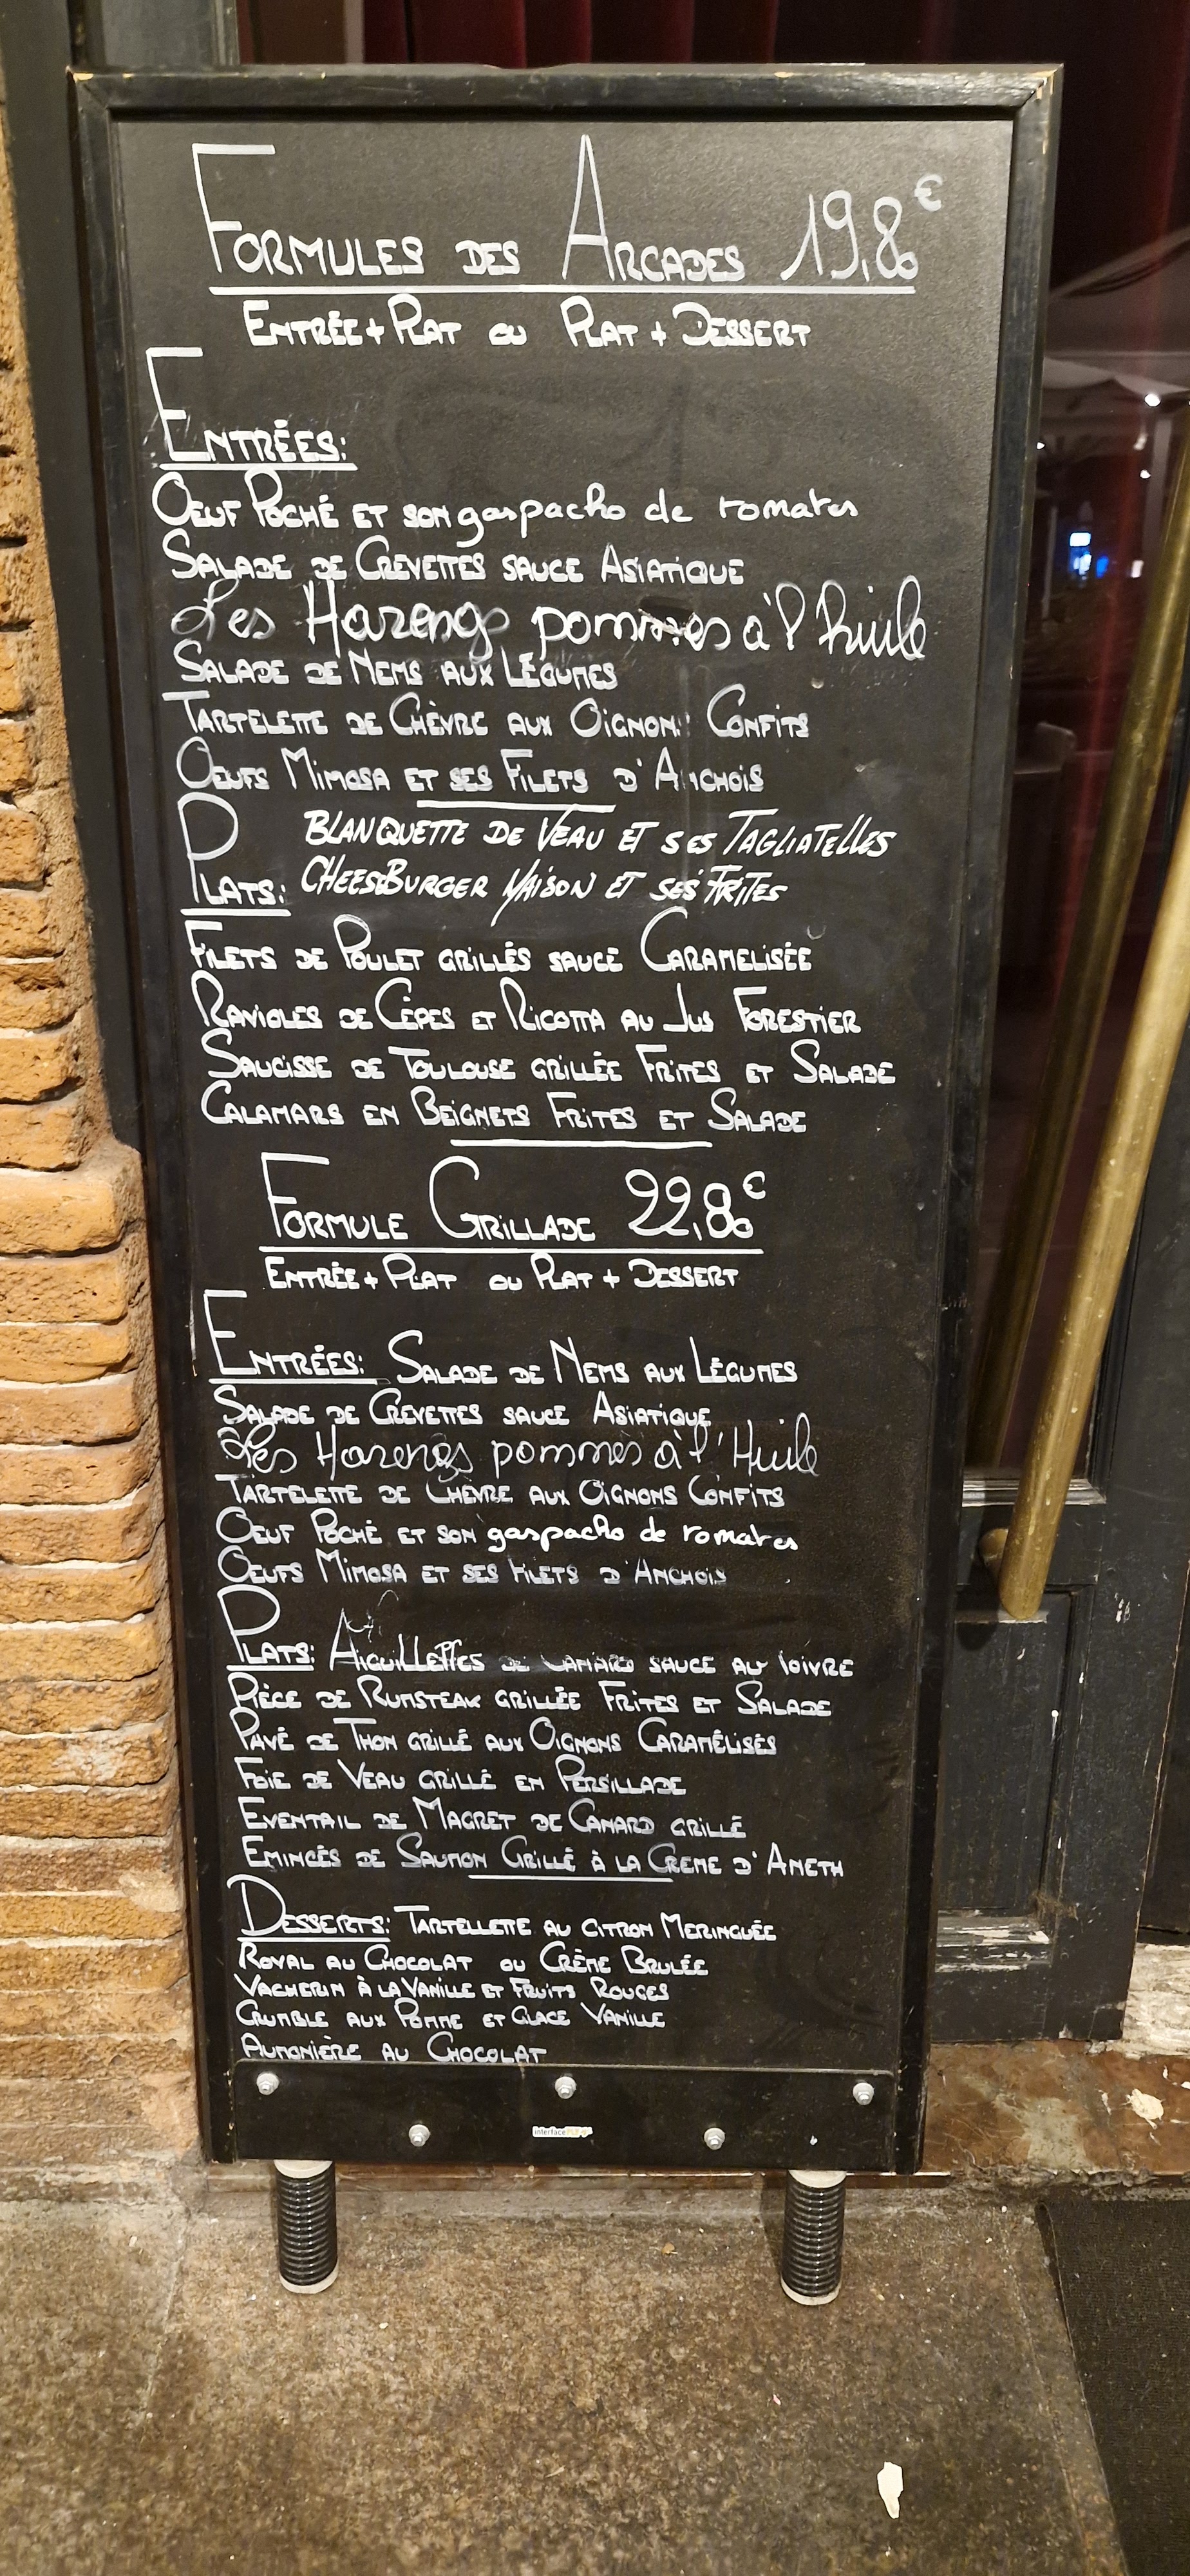 FORMULES DES ARCADES 19,80€
ENTRÉE + PLAT OU PLAT + DESSERT
ENTRÉES:
OEUF POCHÉ ET SON gaspacho de tomates
SALADE DE CREVETTES SAUCE ASIATIQUE
Les Harengs pommes à l'huile
SALADE DE NEMS AUX LÉGUMES
TARTELETTE DE CHÈVRE AUX OIGNONS CONFITS
OEUFS MIMOSA ET SES FILETS D'ANCHOIS
PLATS: BLANQUETTE DE VEAU ET SES TAGLIATELLES
CHEESEBURGER MAISON ET SES FRITES
FILETS DE POULET GRILLÉS SAUCE CARAMELISÉE
RAVIOLES DE CÈPES ET RICOTTA AU JUS FORESTIER
SAUCISSE DE TOULOUSE GRILLÉE FRITES ET SALADE
CALAMARS EN BEIGNETS FRITES ET SALADE
FORMULE GRILLADE 22,80€
ENTRÉE + PLAT OU PLAT + DESSERT
ENTRÉES: SALADE DE NEMS AUX LÉGUMES
SALADE DE CREVETTES SAUCE ASIATIQUE
Les Harengs pommes à l'Huile
TARTELETTE DE CHÈVRE AUX OIGNONS CONFITS
OEUF POCHÉ ET SON gaspacho de tomates
OEUFS MIMOSA ET SES FILETS D'ANCHOIS
PLATS: AIGUILLETTES DE CANARD SAUCE AU POIVRE
PIÈCE DE RUMSTEAK GRILLÉE FRITES ET SALADE
PAVÉ DE THON GRILLÉ AUX OIGNONS CARAMÉLISÉS
FOIE DE VEAU GRILLÉ EN PERSILLADE
EVENTAIL DE MAGRET DE CANARD GRILLÉ
EMINCÉS DE SAUMON GRILLÉ À LA CREME D'ANETH
DESSERTS: TARTELLETTE AU CITRON MERINGUÉE
ROYAL AU CHOCOLAT OU CRÈME BRULÉE
VACHERIN À LA VANILLE ET FRUITS ROUGES
CRUMBLE AUX POMME ET GLACE VANILLE
AUMONIÈRE AU CHOCOLAT